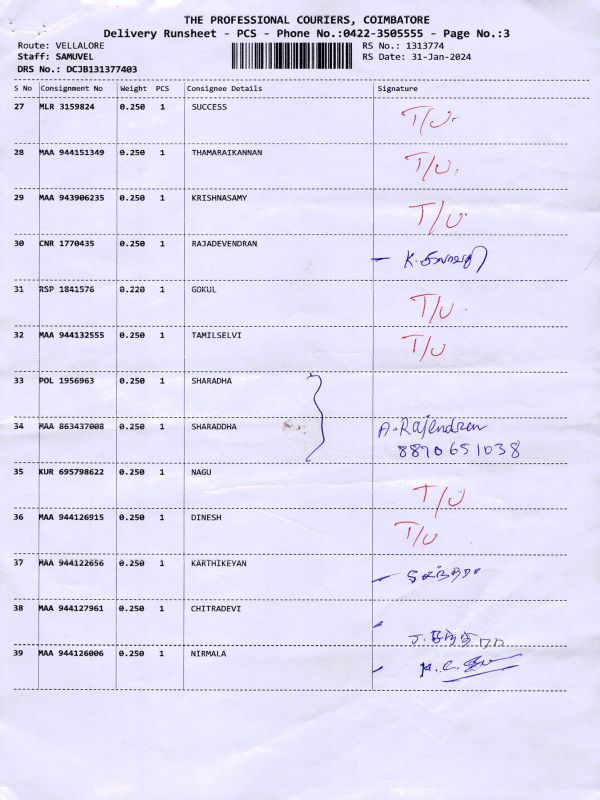 THE PROFESSIONAL COURIERS, COIMBATORE
Delivery Runsheet - PCS - Phone No.:0422-3505555 - Page No.:3
Route: VELLALORE RS No.: 1313774
Staff: SAMUVEL RS Date: 31-Jan-2024
DRS No.: DCJB131377403
S No Consignment No Weight PCS Consignee Details Signature
27 MLR 3159824 0.250 1 SUCCESS T/U.
28 MAA 944151349 0.250 1 THAMARAIKANNAN T/U.
29 MAA 943906235 0.250 1 KRISHNASAMY T/U.
30 CNR 1770435 0.250 1 RAJADEVENDRAN
31 RSP 1841576 0.220 1 GOKUL T/U.
32 MAA 944132555 0.250 1 TAMILSELVI T/U
33 POL 1956963 0.250 1 SHARADHA
34 MAA 863437008 0.250 1 SHARADDHA A. Rajendren
8890651038
35 KUR 695798622 0.250 1 NAGU T/U
36 MAA 944126915 0.250 1 DINESH T/U
37 MAA 944122656 0.250 1 KARTHIKEYAN
38 MAA 944127961 0.250 1 CHITRADEVI
39 MAA 944126006 0.250 1 NIRMALA